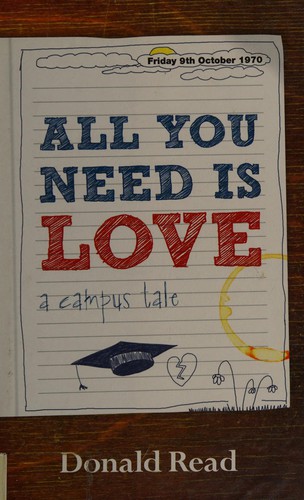 Friday 9th October 1970
ALL YOU
NEED IS
LOVE
a campus tale
Donald Read